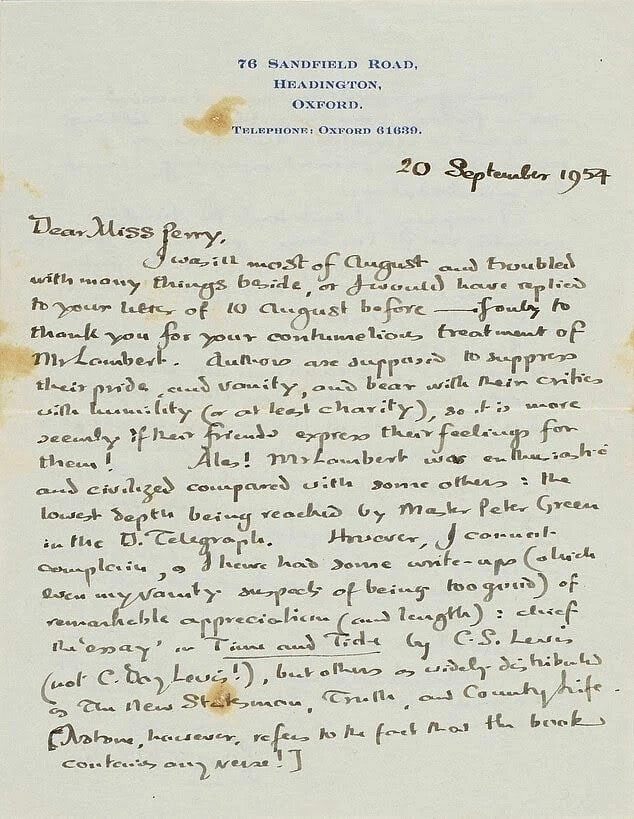 76 SANDFIELD ROAD,
HEADINGTON,
OXFORD.
TELEPHONE: OXFORD 61639.
20 September 1954
Dear Miss Perry,
I was ill most of August and troubled
with many things beside, or I would have replied
to your letter of 10 August before — if only to
thank you for your contumelious treatment of
Mr Lambert. Authors are supposed to suppress
their pride, and vanity, and bear with their critics
with humility (or at least charity), so it is more
seemly if their friends express their feelings for
them! Alas! Mr Lambert was enthusiastic
and civilized compared with some others: the
lowest depth being reached by Master Peter Green
in the D. Telegraph. However, I cannot
complain, as I have had some write-ups (which
even my vanity suspects of being too good) of
remarkable appreciation (and length): chief
the 'essay' in Time and Tide by C.S. Lewis
(not C. Day Lewis!), but others as widely distributed
as The New Statesman, Truth, and Country Life.
[No one, however, refers to the fact that the book
contains any verse!]